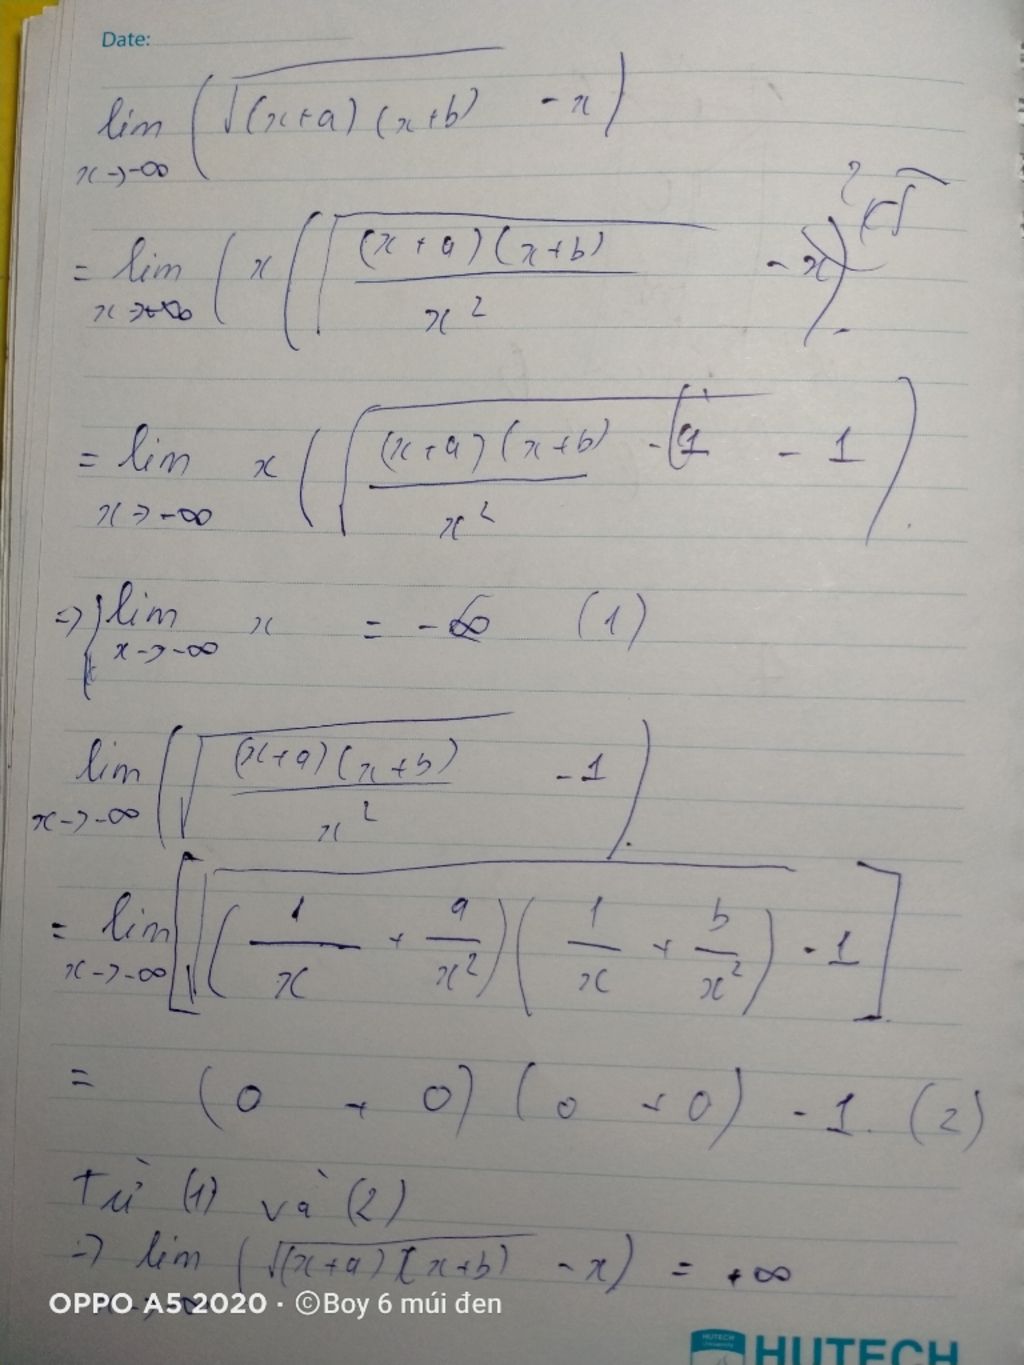 Date:
lim (√(x+a)(x+b) - x)
x→-∞
= lim (x(√(x+a)(x+b)/x² - x)
x→-∞
= lim x(√(x+a)(x+b)/x² - 1)
x→-∞
⇒ lim x = -∞ (1)
x→-∞
lim (√(x+a)(x+b)/x² - 1).
x→-∞
= lim [√(1/x + a/x²)(1/x + b/x²) - 1]
x→-∞
= (0 + 0)(0 + 0) - 1. (2)
Từ (1) và (2)
⇒ lim (√(x+a)(x+b) - x) = +∞
OPPO A5 2020 · ©Boy 6 múi đen
HUTECH
HUTECH